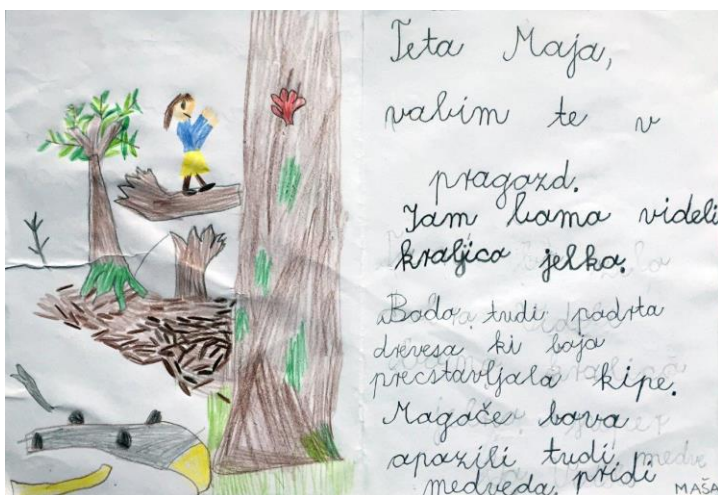 Teta Maja,
vabim te v
pragozd.
Tam bama videli
kraljico jelka.
Bodo tudi podrta
drevesa ki boja
precstavljala kipe.
Magoče bova
apazili tudi
medveda pridi
MAŠA